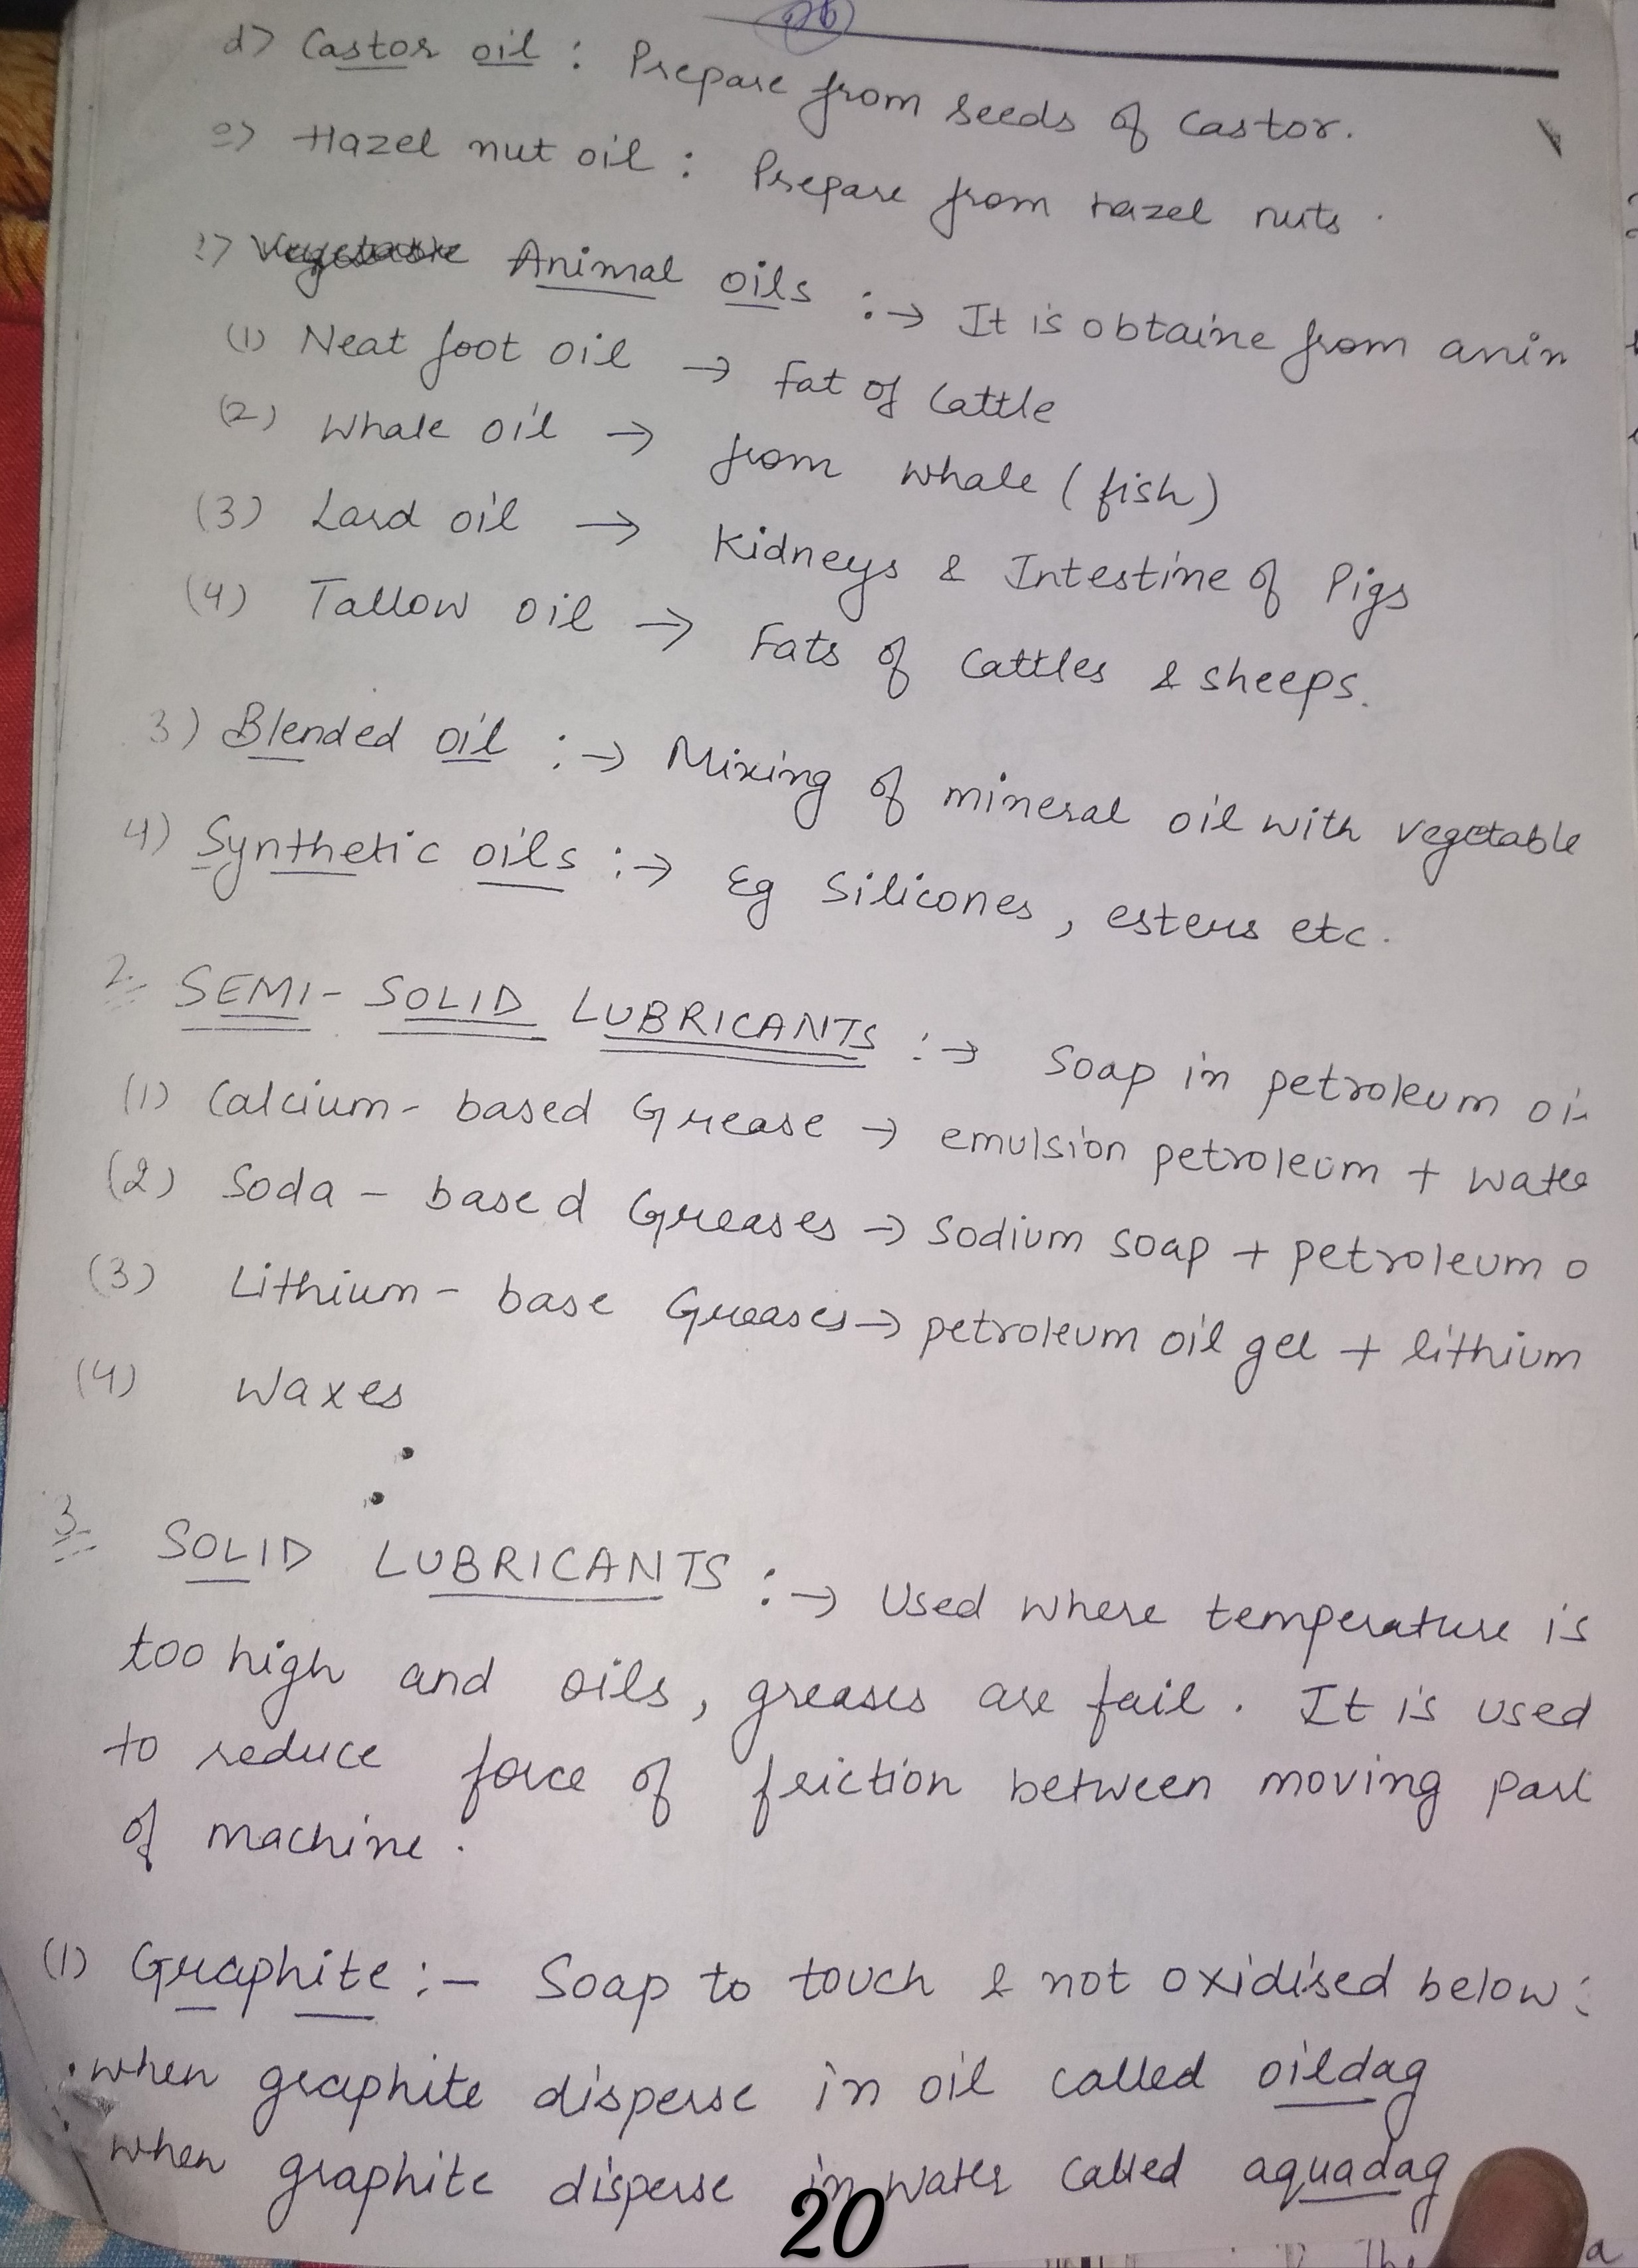 d) Castor oil : Prepare from seeds of Castor.
e) Hazel nut oil : Prepare from Hazel nuts.
Vegetable Animal oils :→ It is obtaine from anim
(1) Neat foot oil → fat of Cattle
(2) Whale oil → from whale (fish)
(3) Lard oil → Kidneys & Intestine of Pigs
(4) Tallow oil → Fats of Cattles & sheeps.
3) Blended oil :→ Mixing of mineral oil with vegetable
4) Synthetic oils :→ Eg Silicones, esters etc.
2. SEMI-SOLID LUBRICANTS :→ Soap in petroleum oi
(1) Calcium-based Grease → emulsion petroleum + Wate
(2) Soda-based Greases → Sodium soap + petroleum o
(3) Lithium-base Greases → petroleum oil gel + lithium
(4) Waxes
3. SOLID LUBRICANTS :→ Used where temperature is
too high and oils, greases are fail. It is used
to reduce force of friction between moving part
of machine.
(1) Graphite :- Soap to touch & not oxidised below
when graphite disperse in oil called oildag
when graphite disperse in water called aquadag
20
The